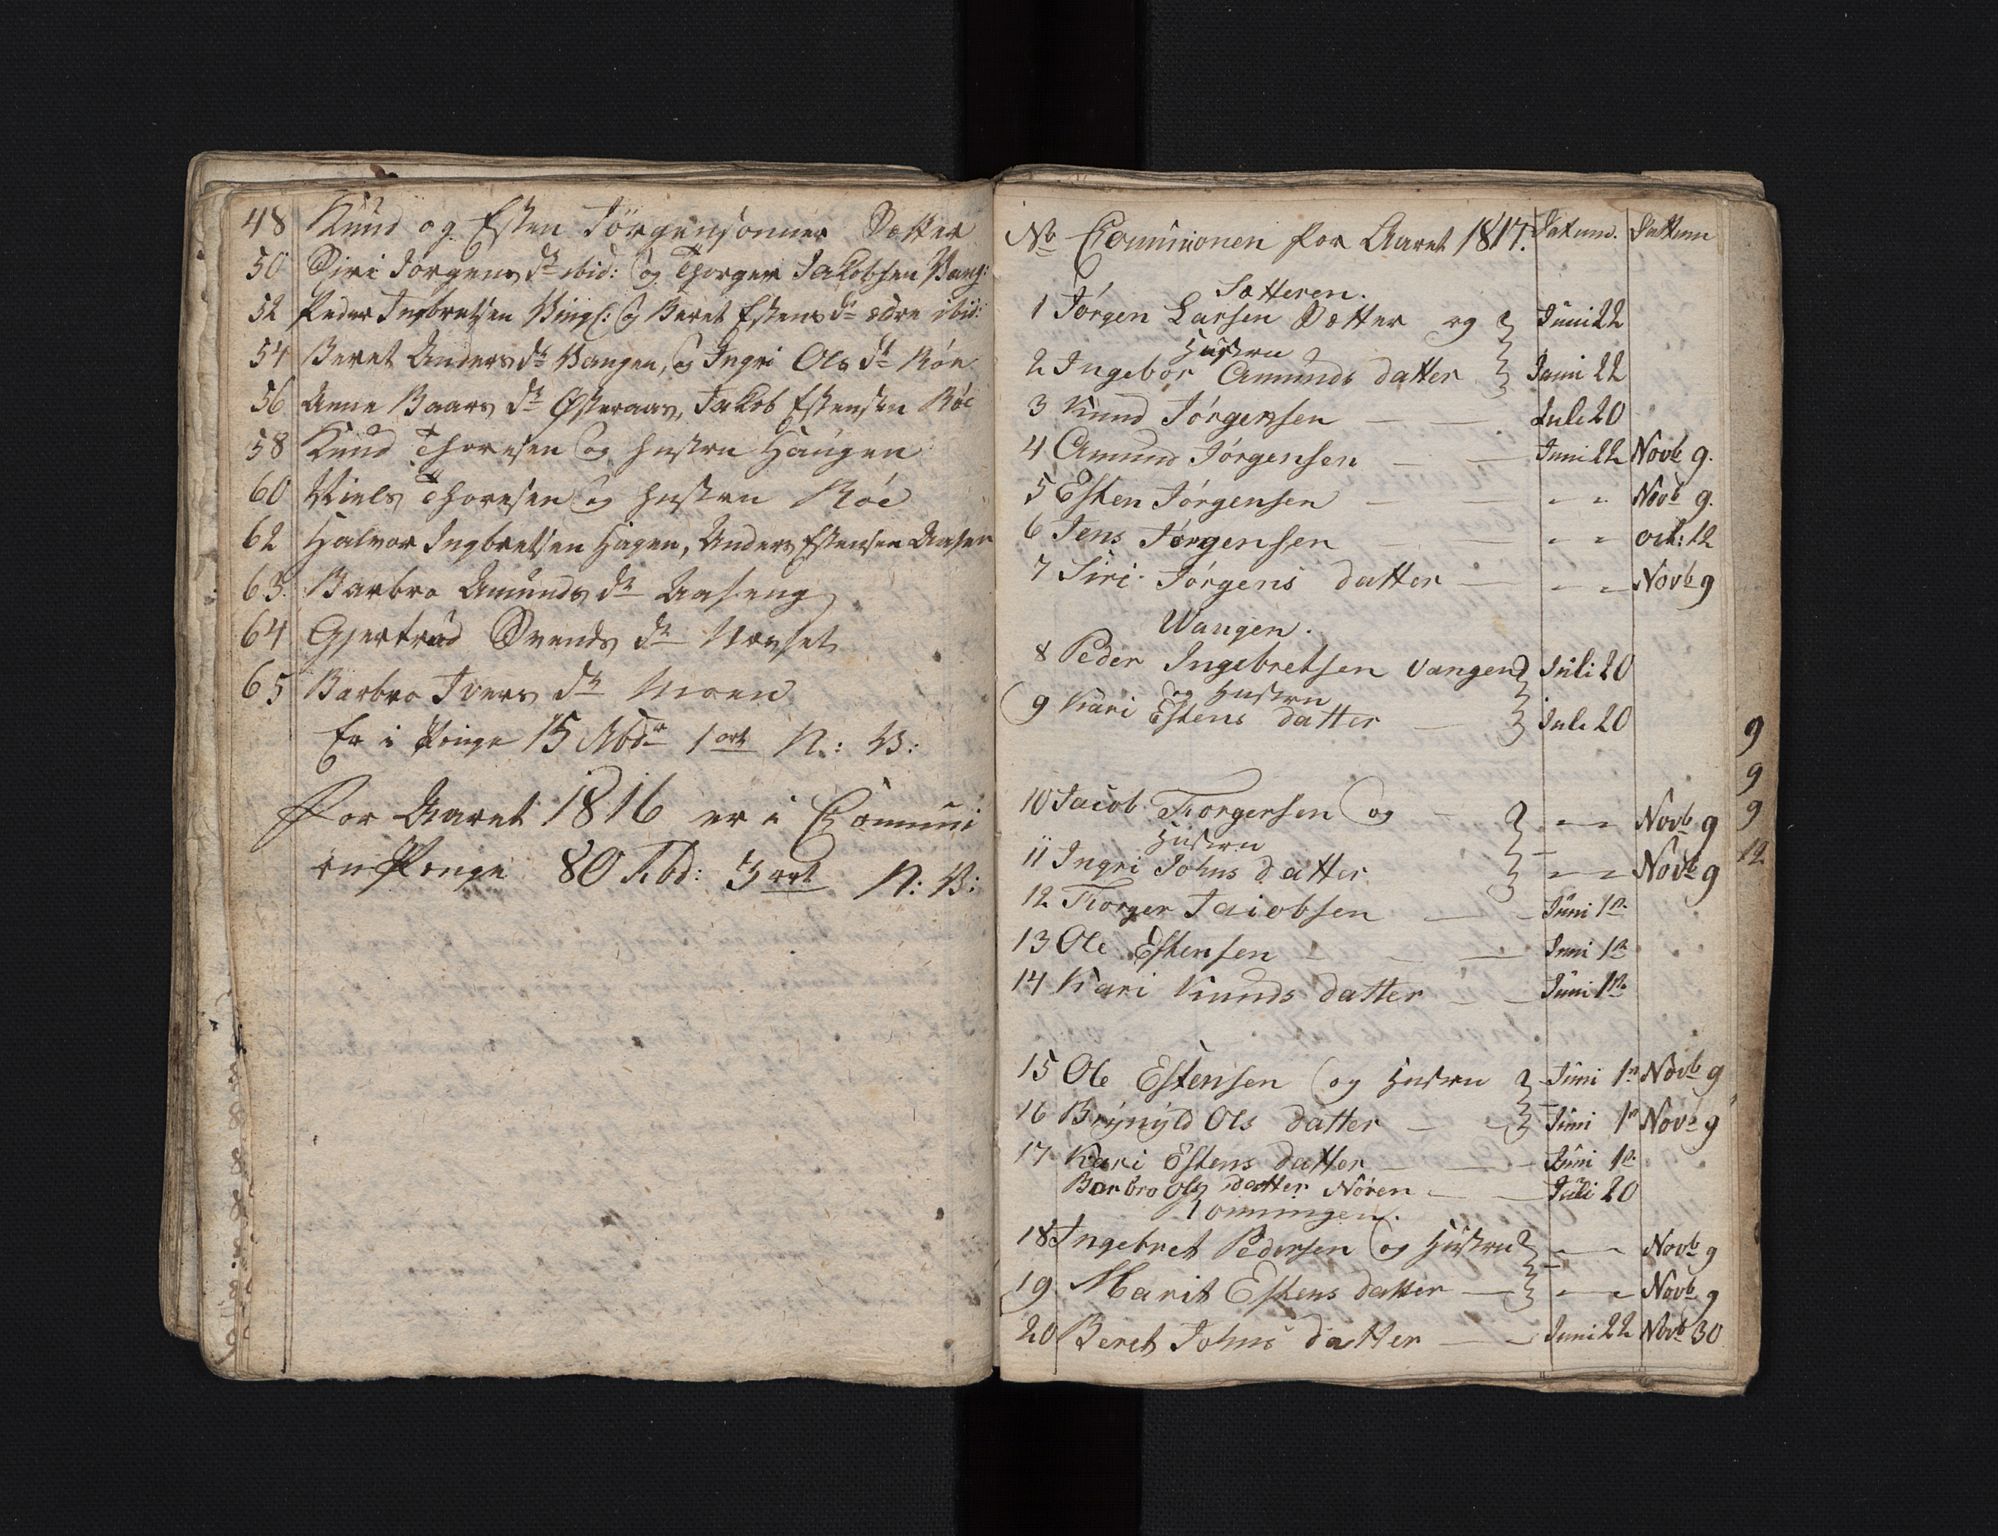 48 Knud og Esten Jörgensönner Sætter
50 Siri Jørgens dr ibid: og Thorger Jakobsen Vang:
52 Peder Ingbretsen Vingl: og Beret Estens dr ædre ibid:
54 Beret Anders dr Vangen, og Ingri Ols dr Röe
56 Anne Baars dr Østeraas, Jakob Estensen Röe
58 Knud Thoresen og Hustru Haugen
60 Niels Thoresen og Hustru Röe
62 Halvor Ingbretsen Hagen, Anders Estensen Aasen
63. Barbro Amunds dr Aaseng
64 Gjertrud Svends dr Nævset
65 Barbro Ivers dr Moen
Er i Penge 15 Rbdr 1 ort N: V:
For Aaret 1816 er i Communi
en Penge 80 Rbd: 3 ort N: V:
No Communionen for Aaret 1817. Datum. Dattum
Sætteren.
1 Jørgen Larsen Sætter og Juni 22
Hustru
2 Ingebor Amunds datter Juni 22
3 Knud Jørgensen — — Juli 20
4 Amund Jørgensen — — Juni 22 Novb 9.
5 Esten Jørgensen — — " " Novb 9.
6 Jens Jørgensen — " " oct: 12
7 Siri Jørgens datter — — " " Novb 9
Wangen.
8 Peder Ingebretsen Vangen Juli 20
og Hustru
9 Kari Estens datter — Juli 20
9
9
10 Jacob Torgersen og — " " Novb 9 9
Hustru
11 Ingri Johns datter " " Novb 9 12
12 Torger Jacobsen — — Juni 1n
13 Ole Estensen — — — Juni 1n
14 Kari Knuds datter — — Juni 1n
15 Ole Estensen og Hustru Juni 1n Novb 9
16 Brynyld Ols datter — — Juni 1n Novb 9
17 Kari Estens datter — — — Juni 1n
Barbro Ols datter Nören — — Juli 20
18 Ingebret Pedersen og Hustru " " Novb 9
19 Marit Estens datter — " " Novb 9
20 Beret Johns datter — — Juni 22 Novb 30